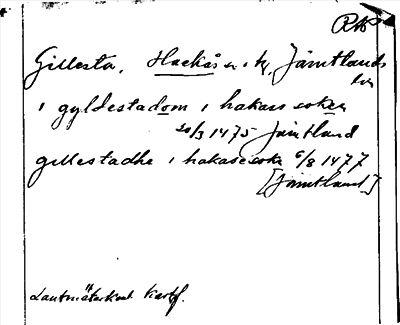 RA
Gillesta, Hackås sn, Jämtlands
län
i gyldestadom i hakass soken
20/3 1475 Jämtland
gillestadhe i hakasesokn 6/8 1477
[Jämtland]
Lantmäterikont Kartf.